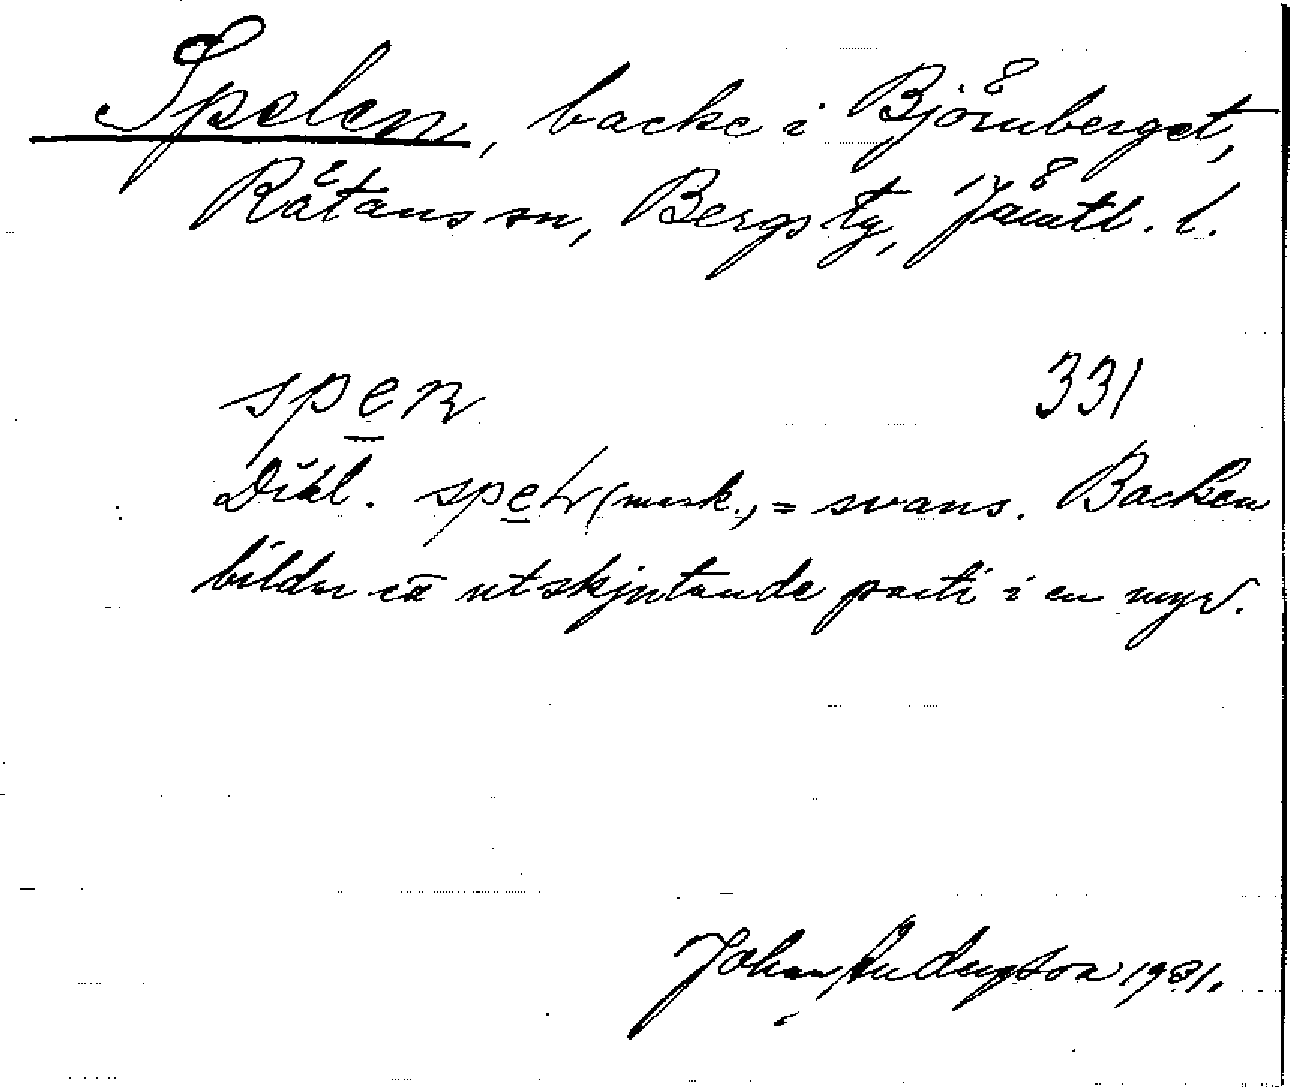 Spelen, backe i Björnberget,
Råtans sn, Bergs tg, Jämtl. l.
spen 331
Dial. (mask., = svans. Backen
bildar ett utskjutande parti i en myr.
Johan 1931.